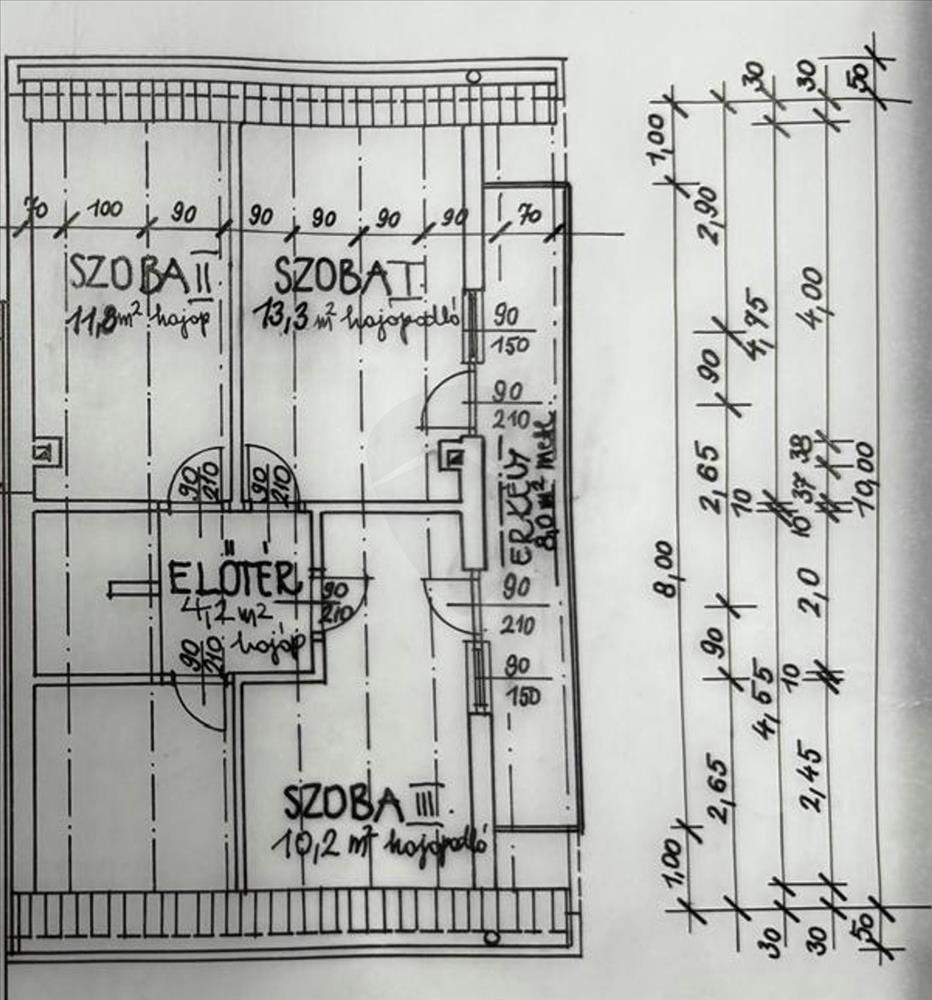 70 100 90 90 90 90 90 70
SZOBA II
11,8 m² hajóp
SZOBA I
13,3 m² hajópadló
90
150
90
210
90
210
90
210
ERKÉLY
8,0 m² metl.
ELŐTÉR
4,2 m²
hajóp
90
210
90
210
90
210
90
150
SZOBA III
10,2 m² hajópadló
1,00
8,00
1,00
2,90
90
2,65
90
2,65
30
4,75
10
4,55
30
30
4,00
38
37
10
2,0
10
2,45
30
50
10,00
50